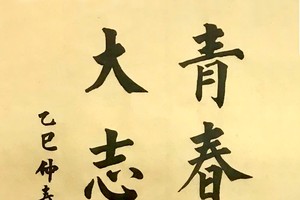 青春
大志
乙巳仲春